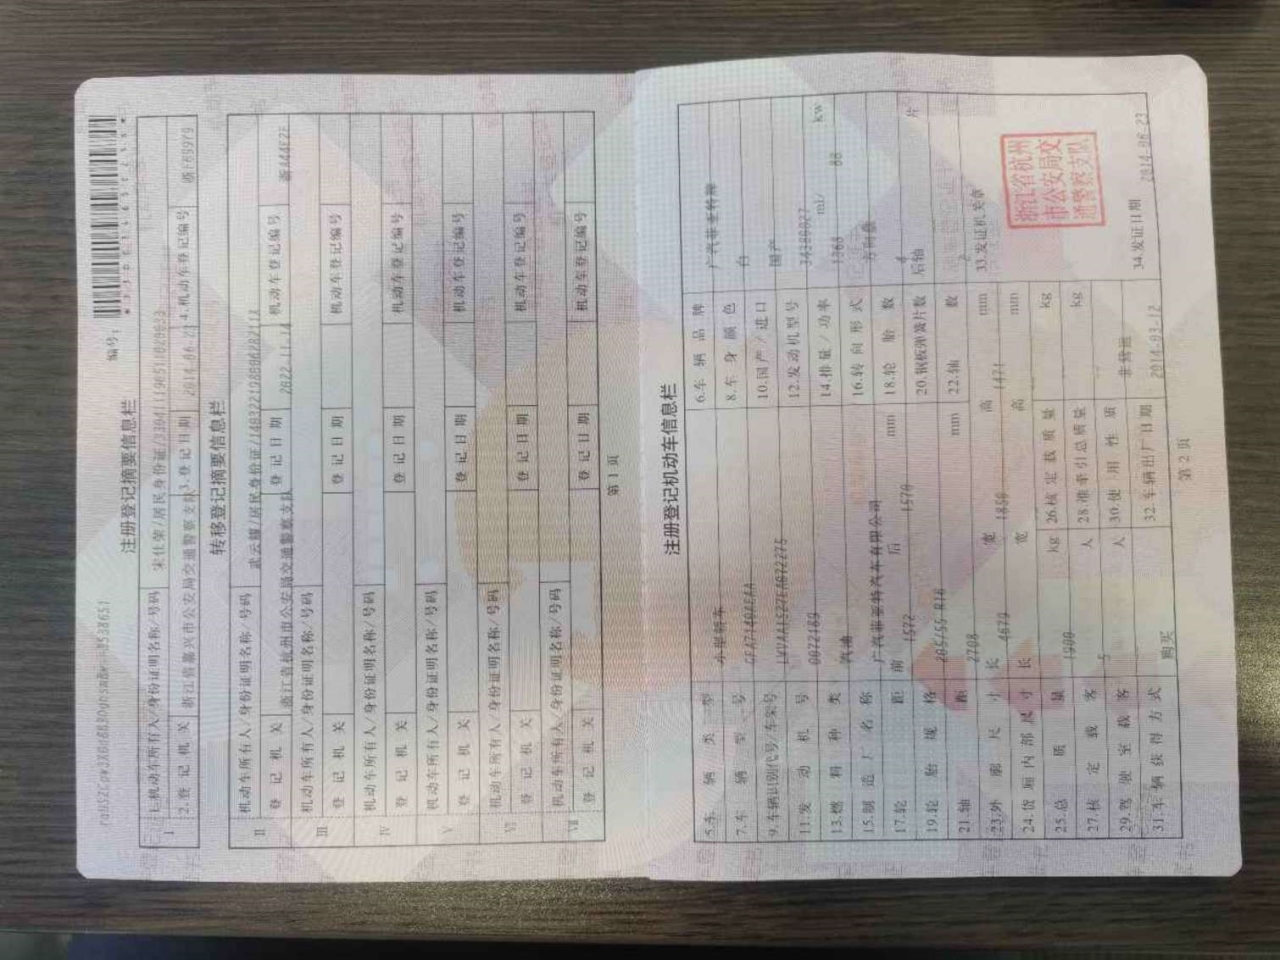 编号:
注册登记摘要信息栏
I 1.机动车所有人/身份证明名称/号码 宋仕荣/居民身份证
2.登记机关 浙江省嘉兴市公安局交通警察支队 3.登记日期 2014-06-23 4.机动车登记编号
转移登记摘要信息栏
II 机动车所有人/身份证明名称/号码 武云耀/居民身份证
登记机关 浙江省杭州市公安局交通警察支队 登记日期 2022-11-14 机动车登记编号
III 机动车所有人/身份证明名称/号码
登记机关 登记日期 机动车登记编号
IV 机动车所有人/身份证明名称/号码
登记机关 登记日期 机动车登记编号
V 机动车所有人/身份证明名称/号码
登记机关 登记日期 机动车登记编号
VI 机动车所有人/身份证明名称/号码
登记机关 登记日期 机动车登记编号
VII 机动车所有人/身份证明名称/号码
登记机关 登记日期 机动车登记编号
第1页
注册登记机动车信息栏
5.车辆类型 小型轿车 6.车辆品牌 广汽菲亚特牌
7.车辆型号 8.车身颜色 白
9.车辆识别代号/车架号 10.国产/进口 国产
11.发动机号 0072169 12.发动机型号
13.燃料种类 汽油 14.排量/功率 1368 ml/ 88 kw
15.制造厂名称 广汽菲亚特汽车有限公司 16.转向形式 方向盘
17.轮距 前 1572 后 1570 mm 18.轮胎数 4
19.轮胎规格 205/55 R16 20.钢板弹簧片数 后轴 片
21.轴距 2708 mm 22.轴数 2
23.外廓尺寸 长 4679 宽 1850 高 1471 mm 33.发证机关章
浙江省杭州
市公安局交
通警察支队
24.货厢内部尺寸 长 宽 高 mm
25.总质量 1900 kg 26.核定载质量 kg
27.核定载客 5 人 28.准牵引总质量 kg
29.驾驶室载客 人 30.使用性质 非营运
31.车辆获得方式 购买 32.车辆出厂日期 2014-03-12 34.发证日期 2014-06-23
第2页